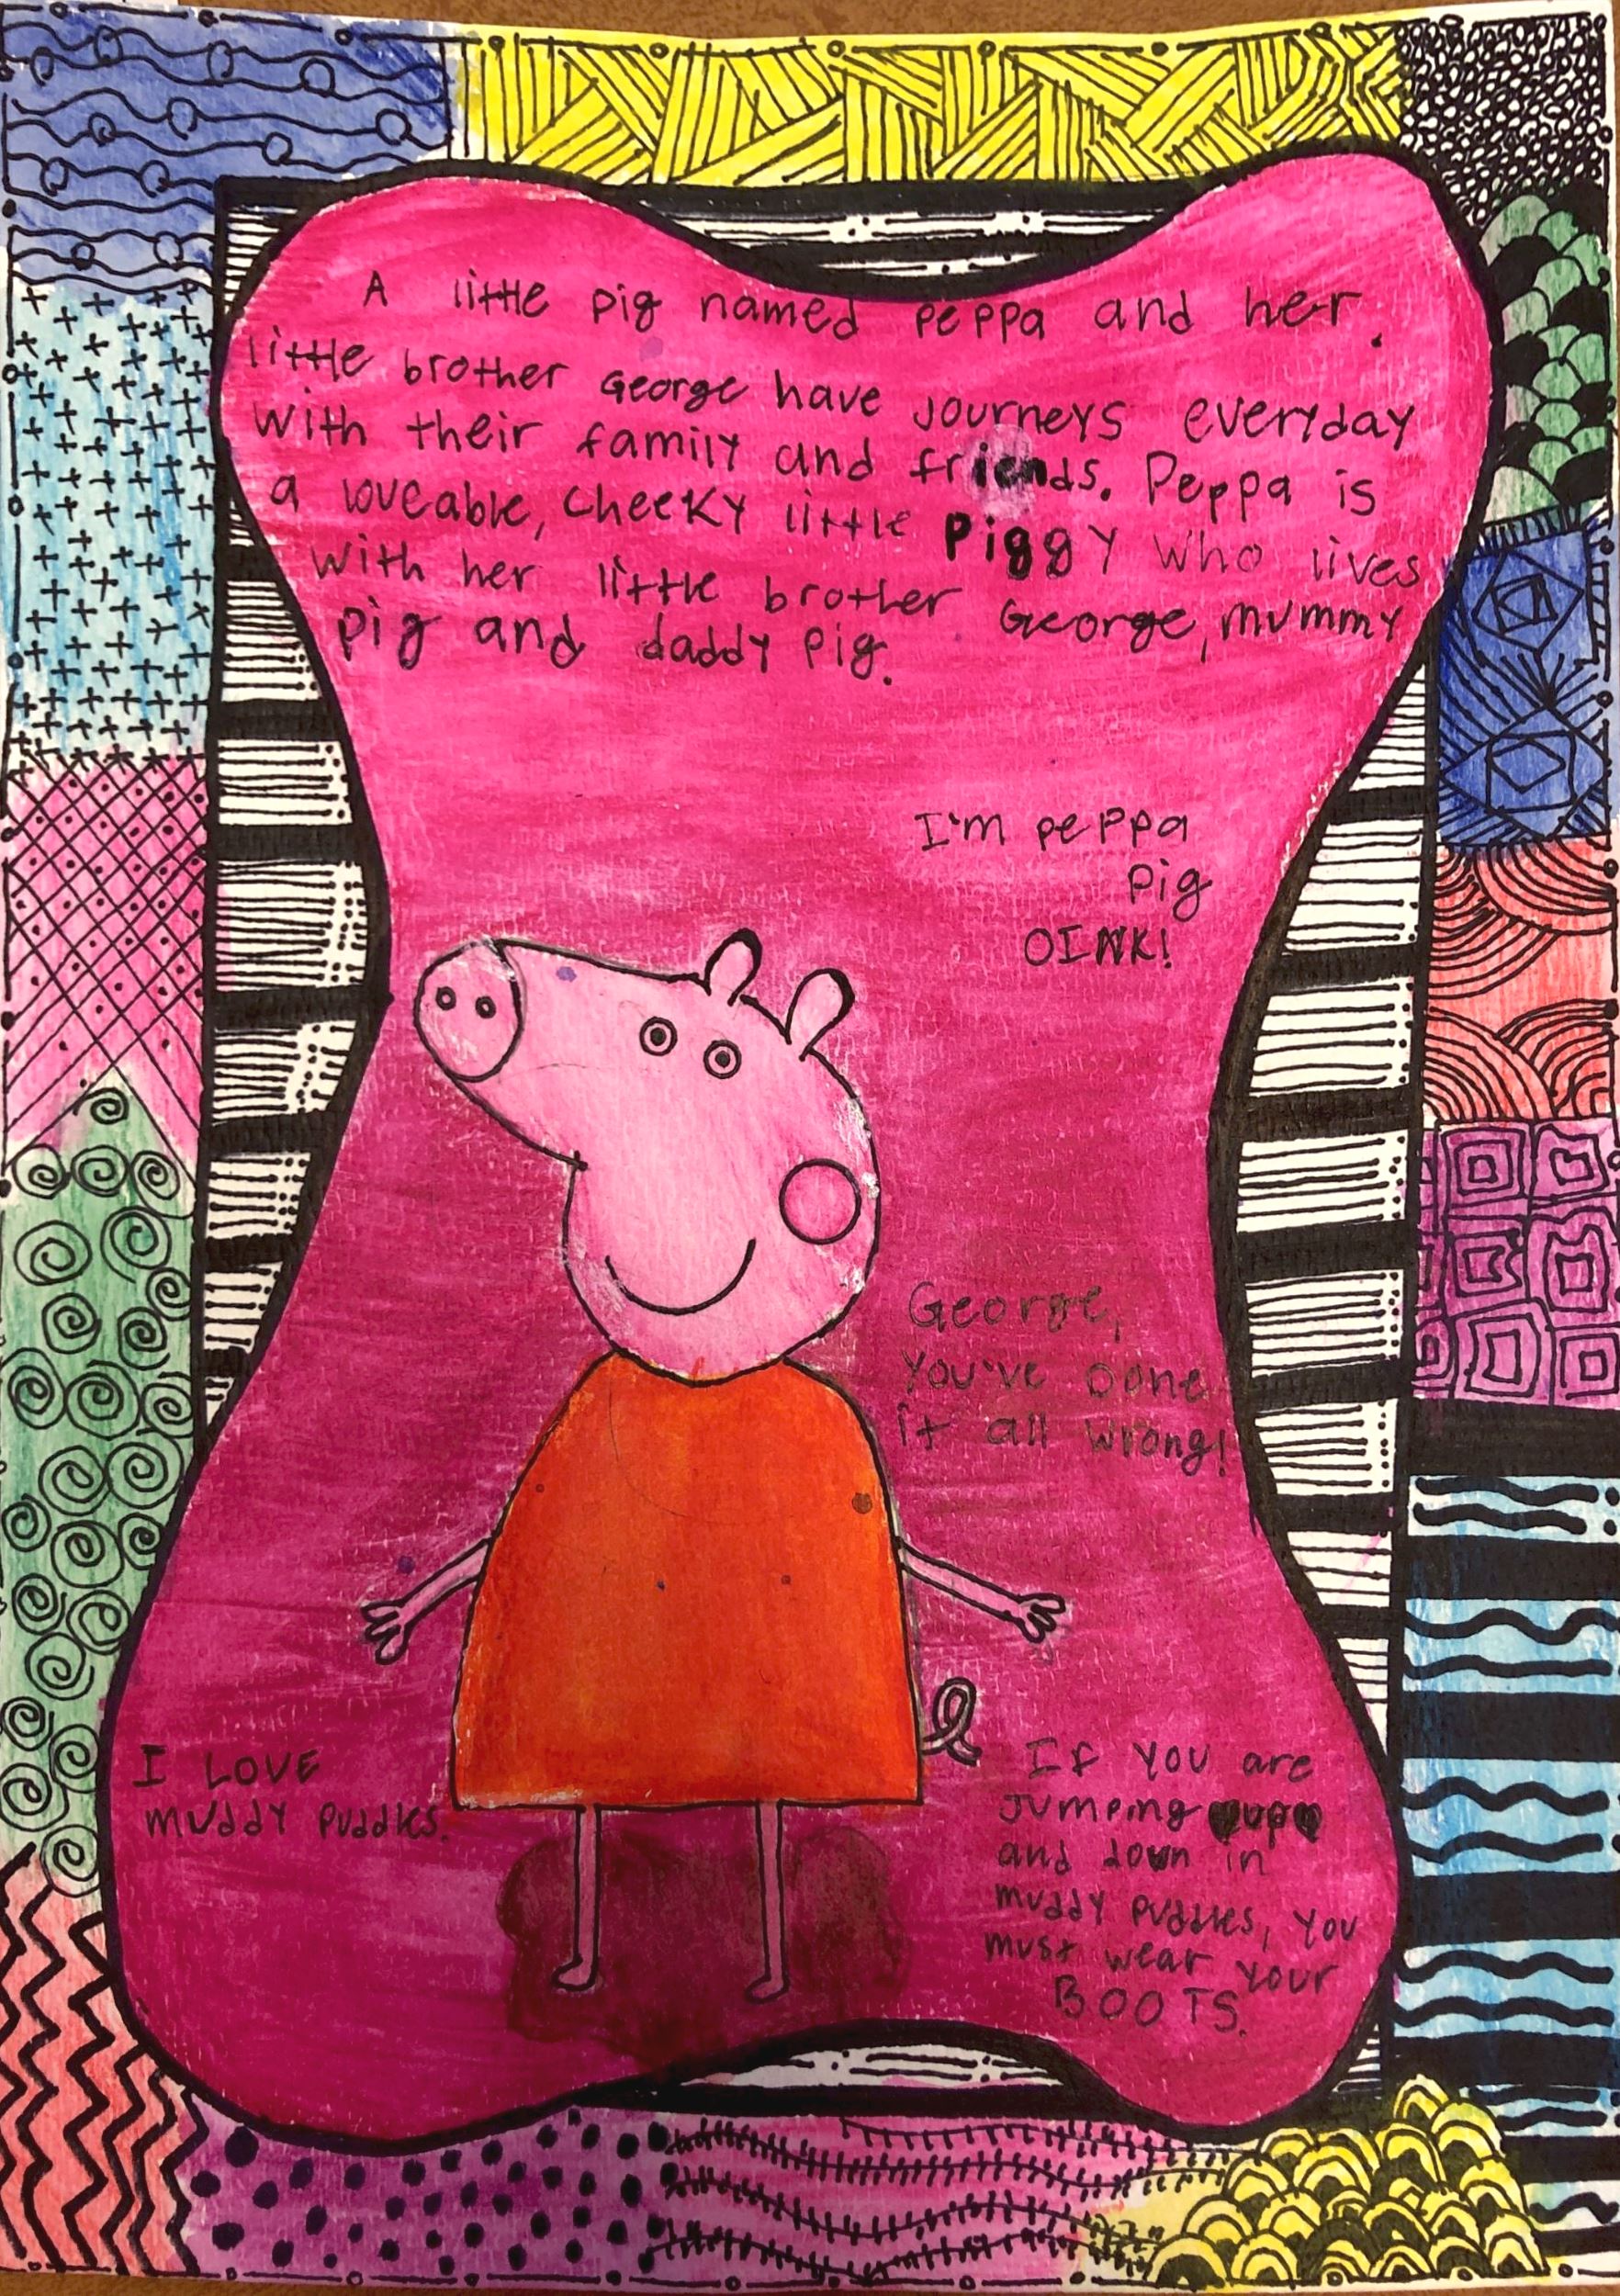 A little pig named peppa and her
little brother George have journeys everyday
with their family and friends. Peppa is
a loveable, cheeky little piggy who lives
with her little brother George, mummy
pig and daddy pig.
I'm peppa
pig
OINK!
George,
you've done
it all wrong!
I LOVE
muddy puddles.
If you are
jumping
and down in
muddy puddles, you
must wear your
BOOTS.